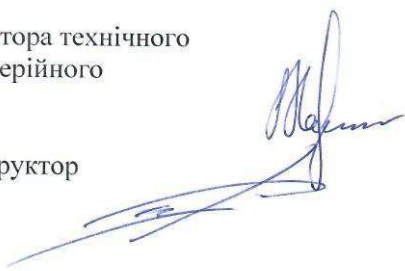 тора технічного
ерійного
руктор